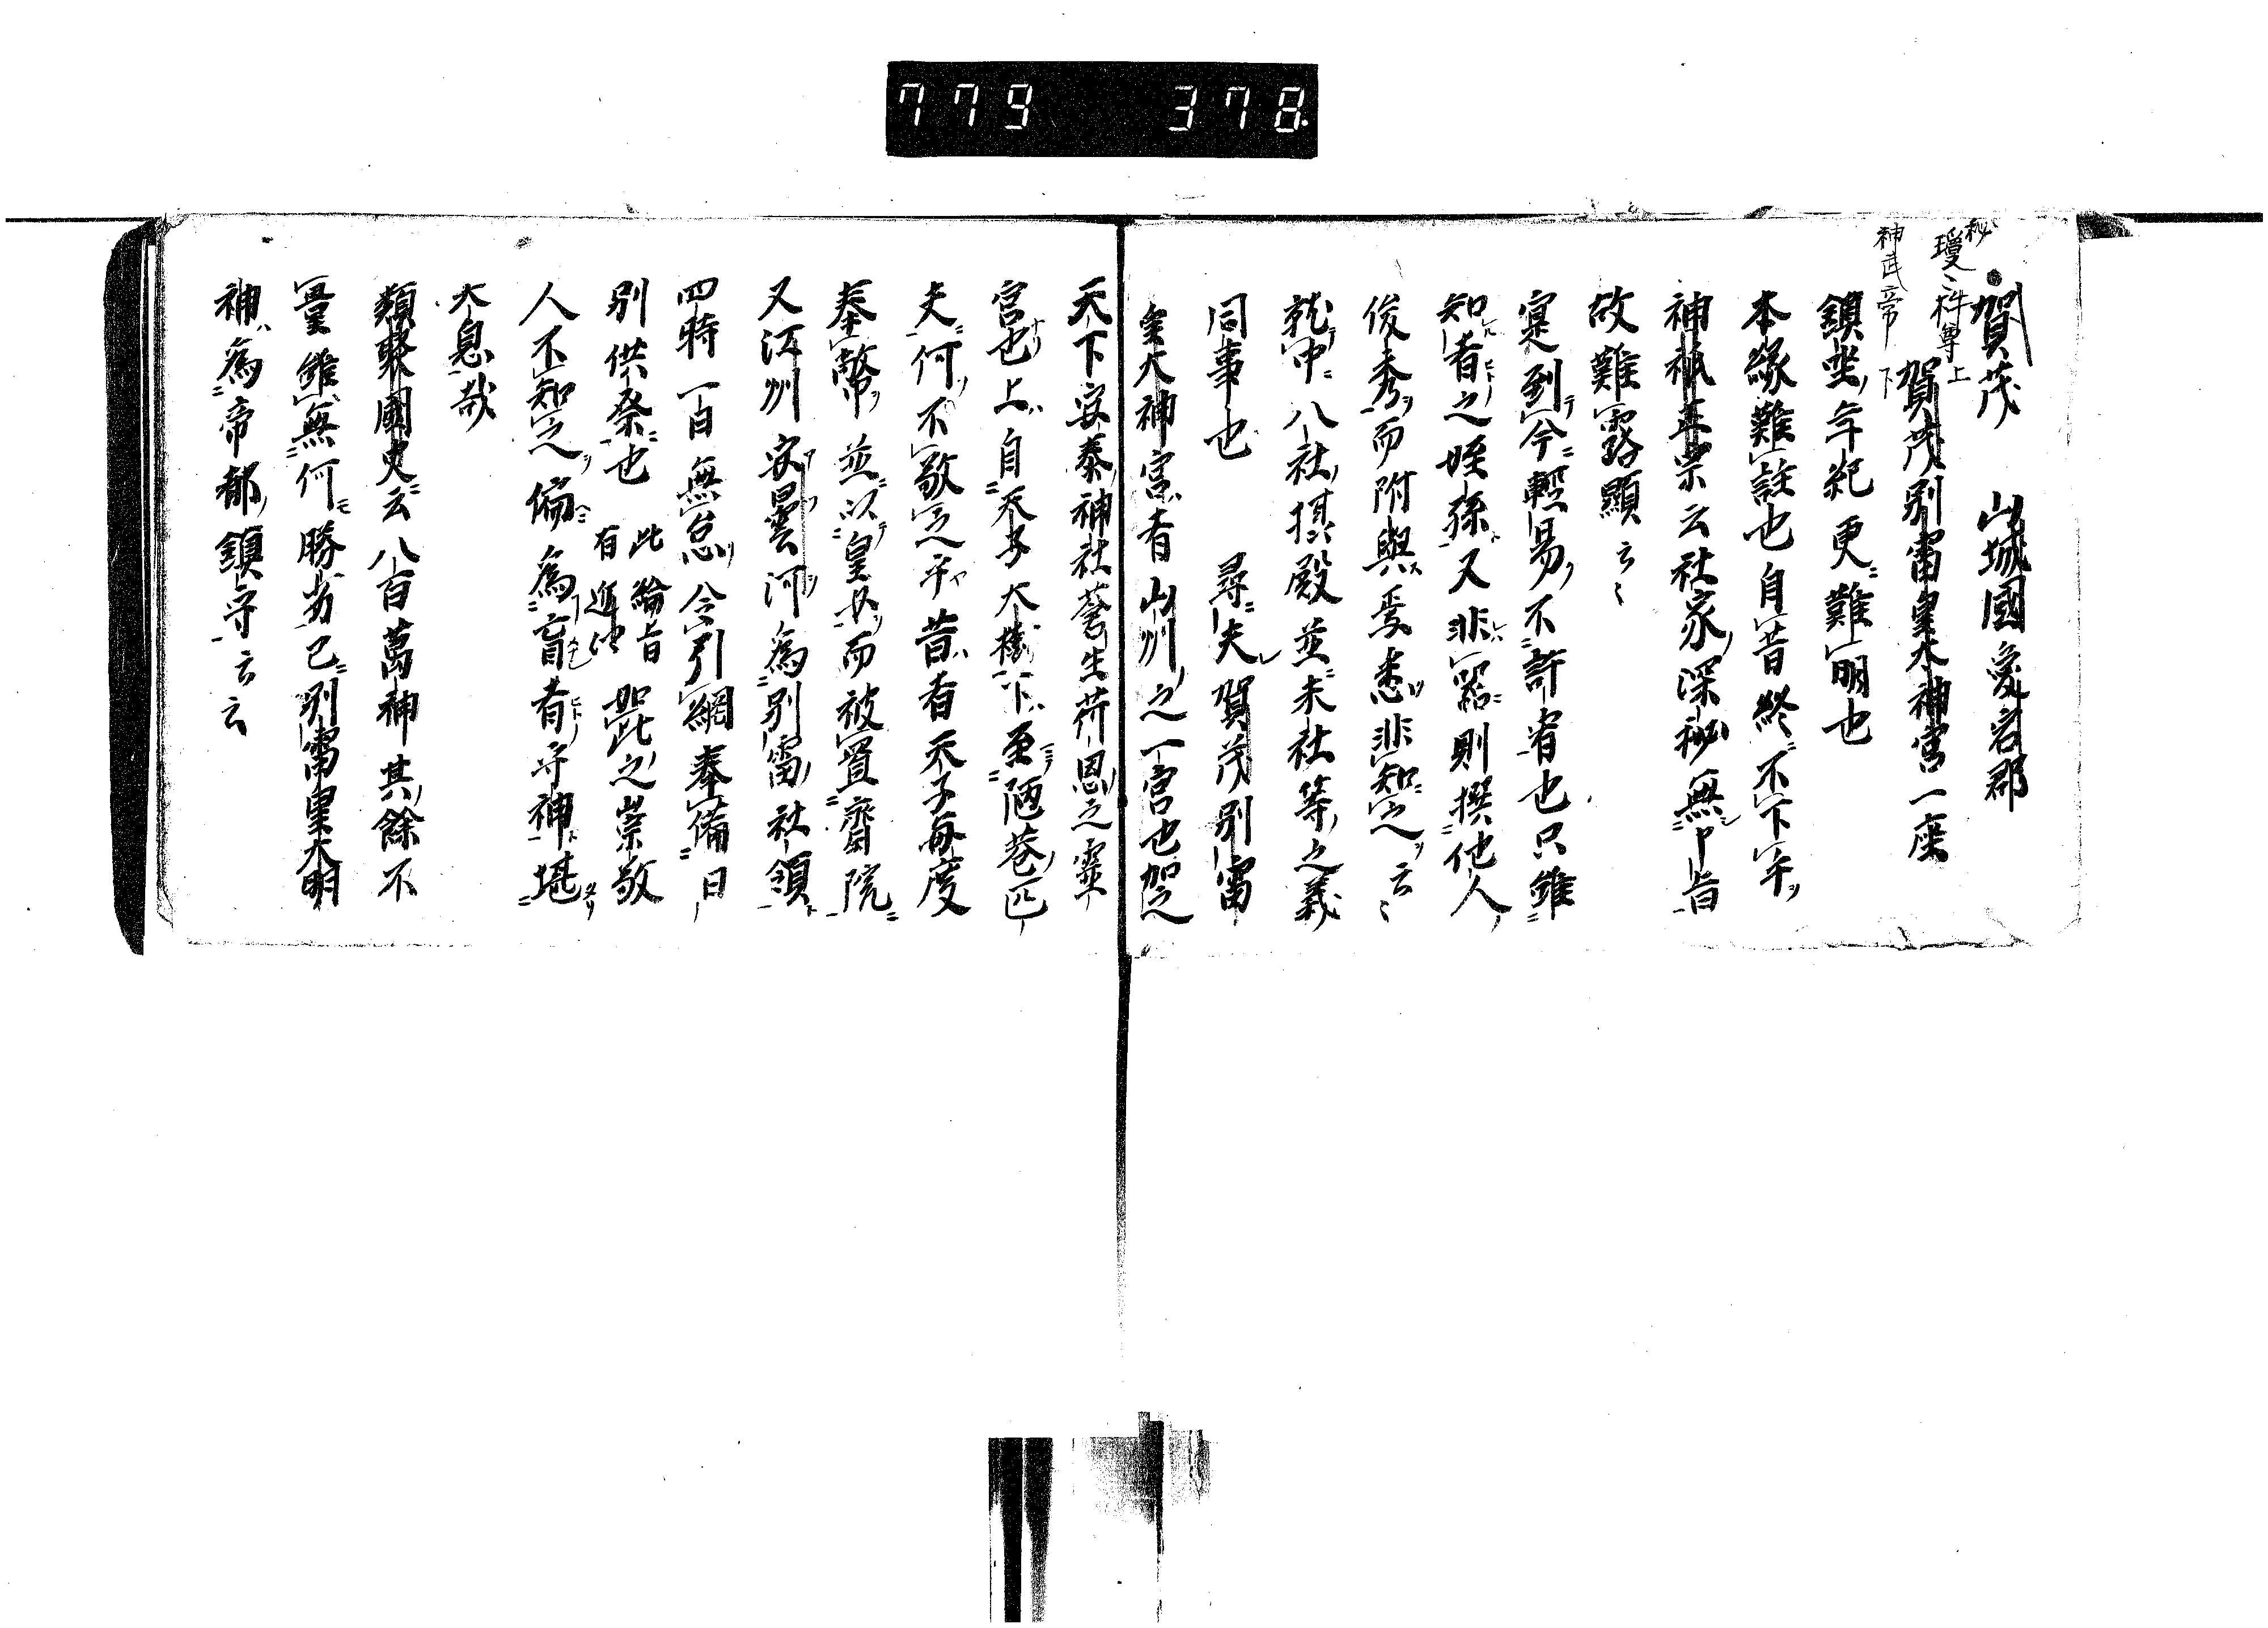 779 378
秘
瓊々杵尊上
神武帝 下
賀茂 山城國愛宕郡
賀茂別雷皇大神宮一座
鎮坐年紀更難明也
本縁難註也自昔終不下午
神祇正宗云社家深秘無口旨
故難露顯云々
寔到今輕易不許者也只雖
知者之姪孫又非器則撰他人
俊秀而附與焉悉非知之云々
就中八社摂殿並末社等之義
同事也 尋夫賀茂別雷
皇大神宮者山州之一宮也加之
天下安泰神社蒼生荷恩之靈
宮也上自天子大樹下至陋巷匹
夫何不敬之乎昔者天子毎度
奉幣並以皇女而被置齋院
又江州安曇河為別雷社領
四時一百無怠令引網奉備日
別供祭也 此綸旨有近代 如此之崇敬
人不知之偏為盲者乎神堪
大息哉
類聚國史云八百萬神其餘不
量雖無何勝劣已別雷皇大明
神為帝都鎮守云云